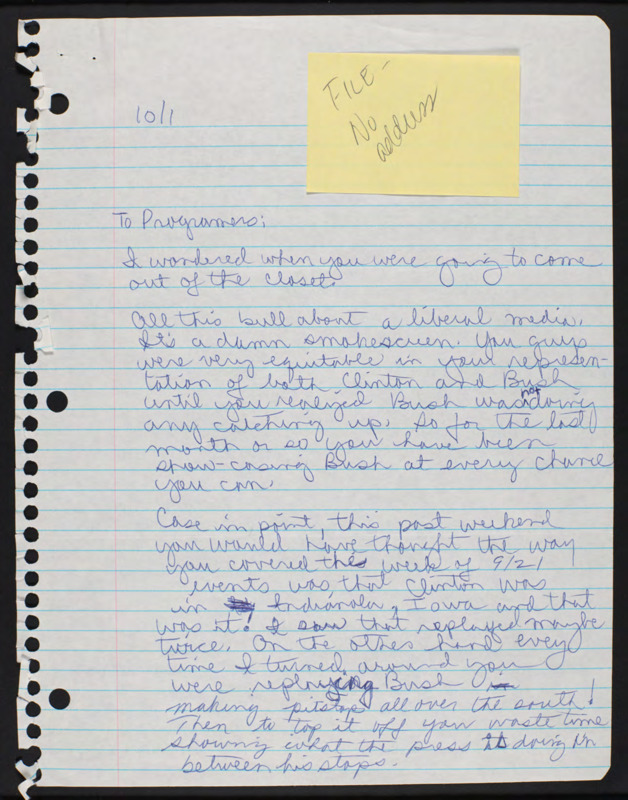 FILE -
No
address
10/1
To Programers;
I wondered when you were going to come
out of the closet.
All this bull about a liberal media.
It's a damn smokescreen. You guys
were very equitable in your represen-
tation of both Clinton and Bush
until you realized Bush was not doing
any catching up. So for the last
month or so you have been
show-casing Bush at every chance
you can.
Case in point, this past weekend
you would have thought the way
you covered the week of 9/21
events was that Clinton was
in Indianola, Iowa and that
was it! I saw that replayed maybe
twice. On the other hand every
time I turned around you
were replaying Bush
making pitstop all over the south!
Then to top it off you waste time
showing what the press is doing in
between his stops.